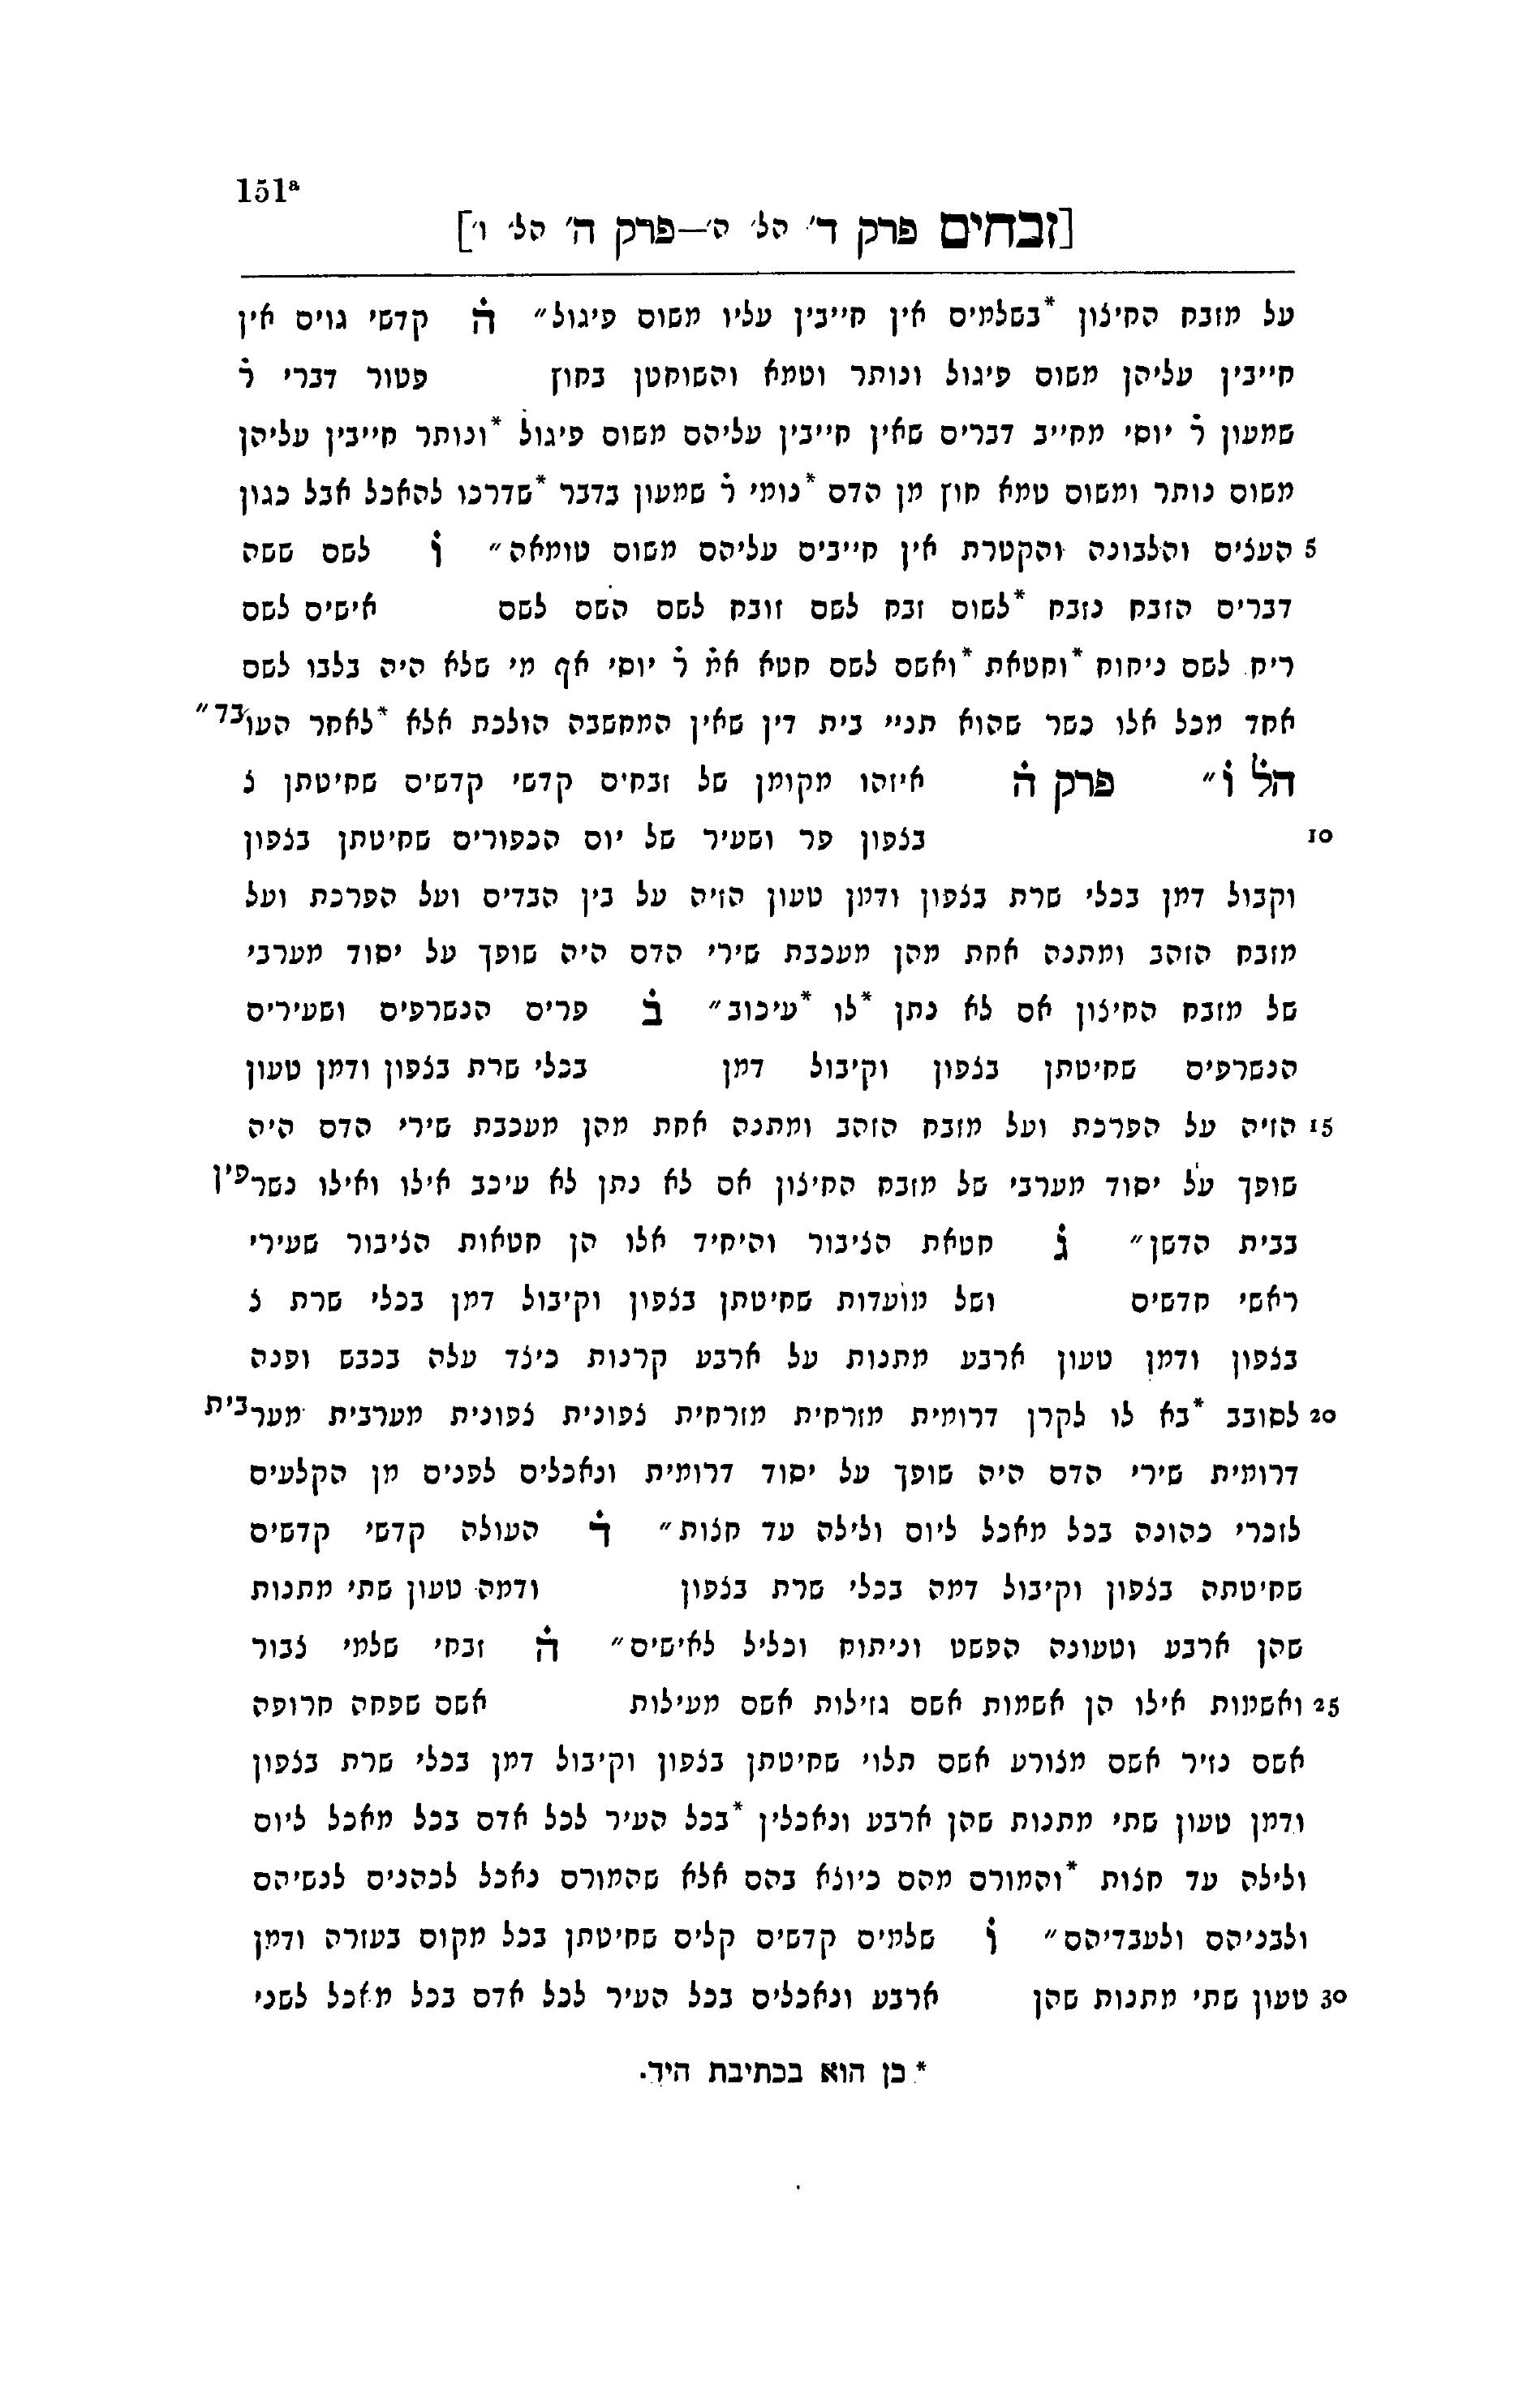 151ª
[זבחים פרק ד׳ הל׳ ה׳—פרק ה׳ הל׳ ו׳]
על מזבח החיצון *בשלמים אין חייבין עליו משום פיגול״ ה̇ קדשי גוים אין
חייבין עליהן משום פיגול ונותר וטמא והשוחטן בחוץ פטור דברי ר̇
שמעון ר̇ יוסי מחייב דברים שאין חייבין עליהם משום פיגול *ונותר חייבין עליהן
משום נותר ומשום טמא חוץ מן הדם *נומי ר̇ שמעון בדבר *שדרכו להאכל אבל כגון
5 העצים והלבונה והקטרת אין חייבים עליהם משום טומאה״ ו̇ לשם ששה
דברים הזבח נזבח *לשום זבח לשם זובח לשם השם לשם אישים לשם
ריח לשם ניחוח *וחטאת *ואשם לשם חטא אמ̇ ר̇ יוסי אף מי שלא היה בלבו לשם
אחד מכל אלו כשר שהוא תניי בית דין שאין המחשבה הולכת אלא *לאחר העובד״
הל̇ ו̇״ פרק ה̇ איזהו מקומן של זבחים קדשי קדשים שחיטתן צ
10 בצפון פר ושעיר של יום הכפורים שחיטתן בצפון
וקבול דמן בכלי שרת בצפון ודמן טעון הזיה על בין הבדים ועל הפרכת ועל
מזבח הזהב ומתנה אחת מהן מעכבת שירי הדם היה שופך על יסוד מערבי
של מזבח החיצון אם לא נתן *לו *עיכוב״ ב̇ פרים הנשרפים ושעירים
הנשרפים שחיטתן בצפון וקיבול דמן בכלי שרת בצפון ודמן טעון
15 הזיה על הפרכת ועל מזבח הזהב ומתנה אחת מהן מעכבת שירי הדם היה
שופך על יסוד מערבי של מזבח החיצון אם לא נתן לא עיכב אילו ואילו נשרפין
בבית הדשן״ ג̇ חטאת הציבור והיחיד אלו הן חטאות הציבור שעירי
ראשי חדשים ושל מועדות שחיטתן בצפון וקיבול דמן בכלי שרת צ
בצפון ודמן טעון ארבע מתנות על ארבע קרנות כיצד עלה בכבש ופנה
20 לסובב *בא לו לקרן דרומית מזרחית מזרחית צפונית צפונית מערבית מערבית
דרומית שירי הדם היה שופך על יסוד דרומית ונאכלים לפנים מן הקלעים
לזכרי כהונה בכל מאכל ליום ולילה עד חצות״ ד̇ העולה קדשי קדשים
שחיטתה בצפון וקיבול דמה בכלי שרת בצפון ודמה טעון שתי מתנות
שהן ארבע וטעונה הפשט וניתוח וכליל לאישים״ ה̇ זבחי שלמי צבור
25 ואשמות אילו הן אשמות אשם גזילות אשם מעילות אשם שפחה חרופה
אשם נזיר אשם מצורע אשם תלוי שחיטתן בצפון וקיבול דמן בכלי שרת בצפון
ודמן טעון שתי מתנות שהן ארבע ונאכלין *בכל העיר לכל אדם בכל מאכל ליום
ולילה עד חצות *והמורם מהם כיוצא בהם אלא שהמורם נאכל לכהנים לנשיהם
ולבניהם ולעבדיהם״ ו̇ שלמים קדשים קלים שחיטתן בכל מקום בעזרה ודמן
30 טעון שתי מתנות שהן ארבע ונאכלים בכל העיר לכל אדם בכל מאכל לשני
* כן הוא בכתיבת היד.